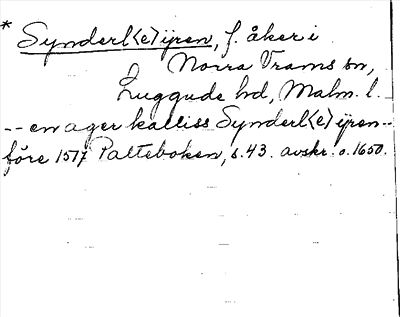 * Synderl<e>ijren, f. åker i
Norra Vrams sn,
Luggude hd, Malm. l.
-- en ager kalliss Synderl<e>ijren --
före 1517 Palteboken, s. 43. avskr. o. 1650.